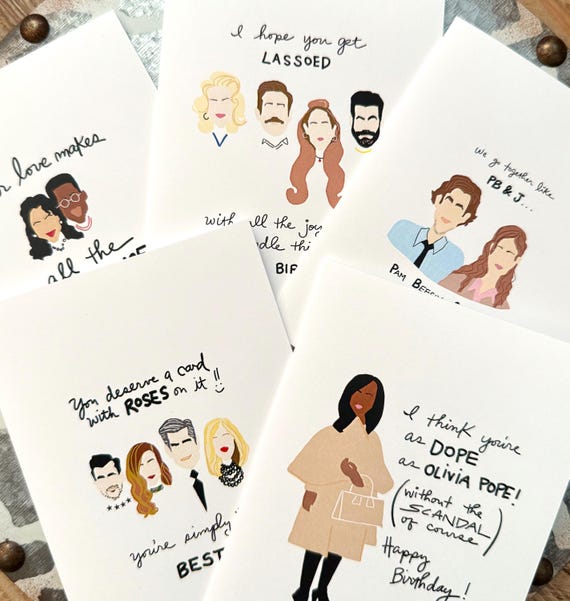 I hope you get
LASSOED
with all the joy
this
love makes
all the
We go together like
PB & J...
PAM
You deserve a card
with ROSES on it!!
you're simply
BEST
I think you're
as DOPE
as OLIVIA POPE!
(without the
SCANDAL
of course)
Happy
Birthday!